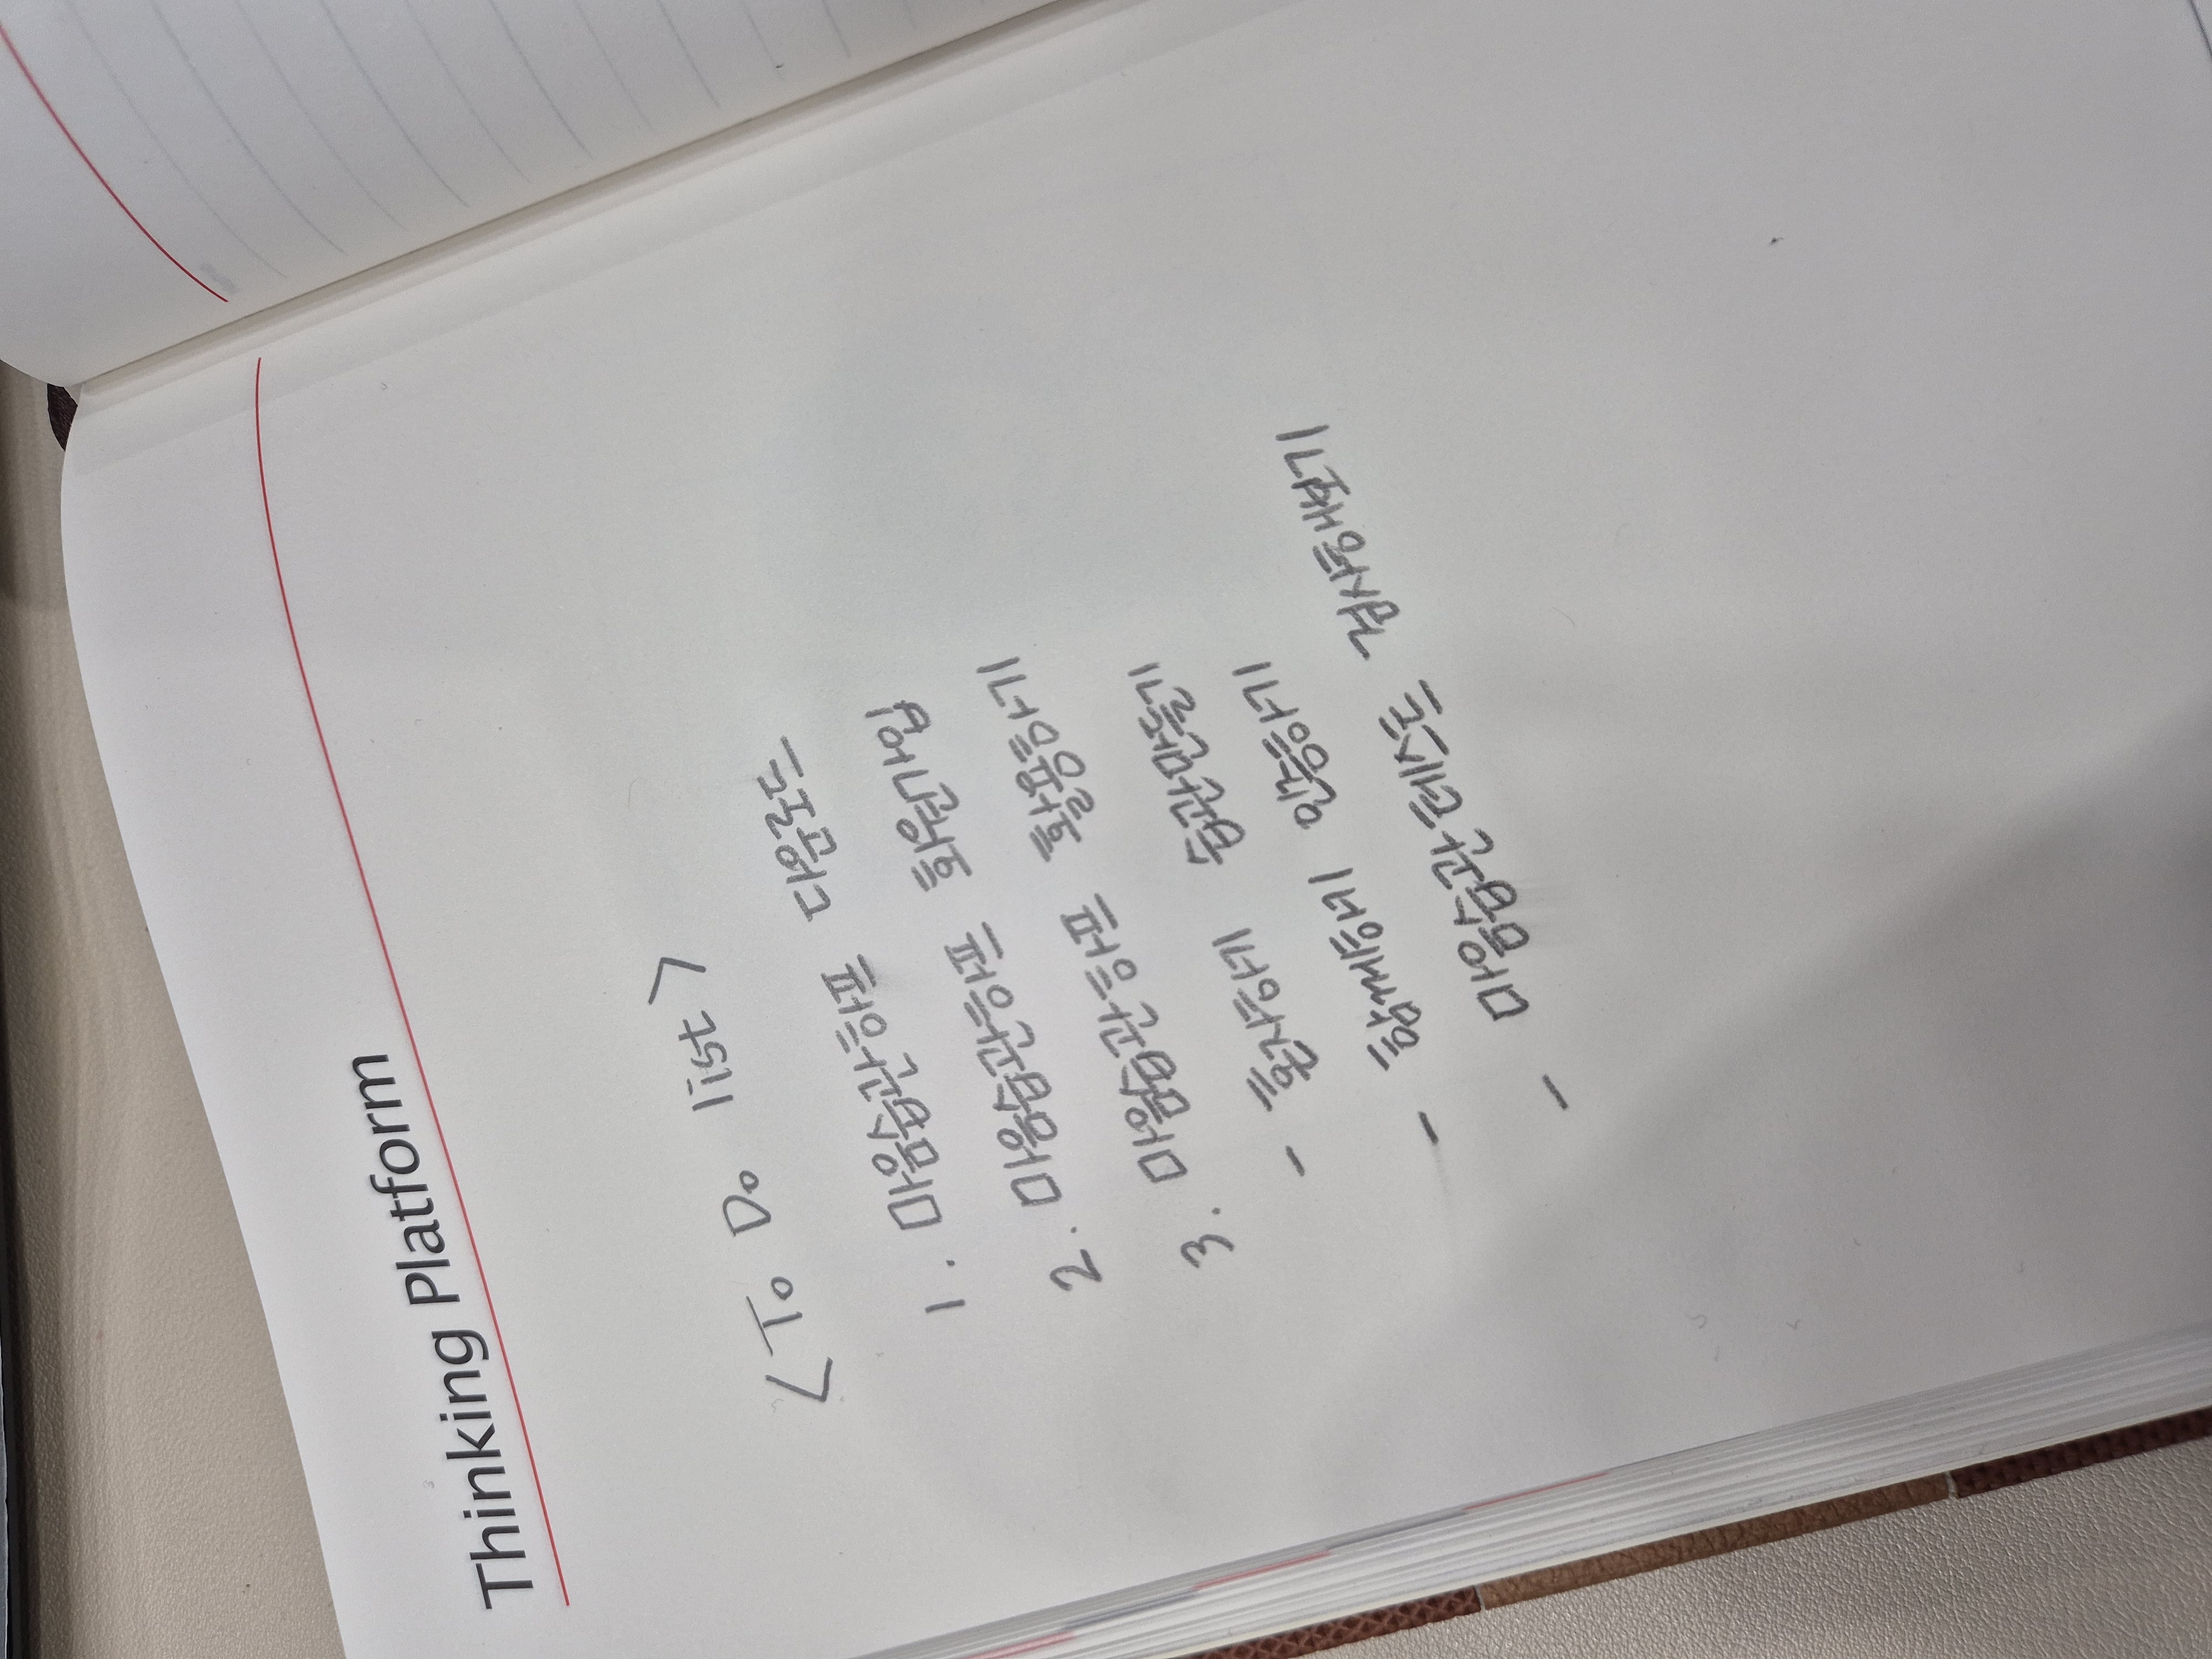 Thinking Platform
< To Do list >
1. 마음습관어플 다운로드
2. 마음습관어플 회원가입
3. 마음습관어플 활용하기
- 혼자하기 습관만들기
- 함께하기 인증하기
- 마음습관테스트 검사해보기